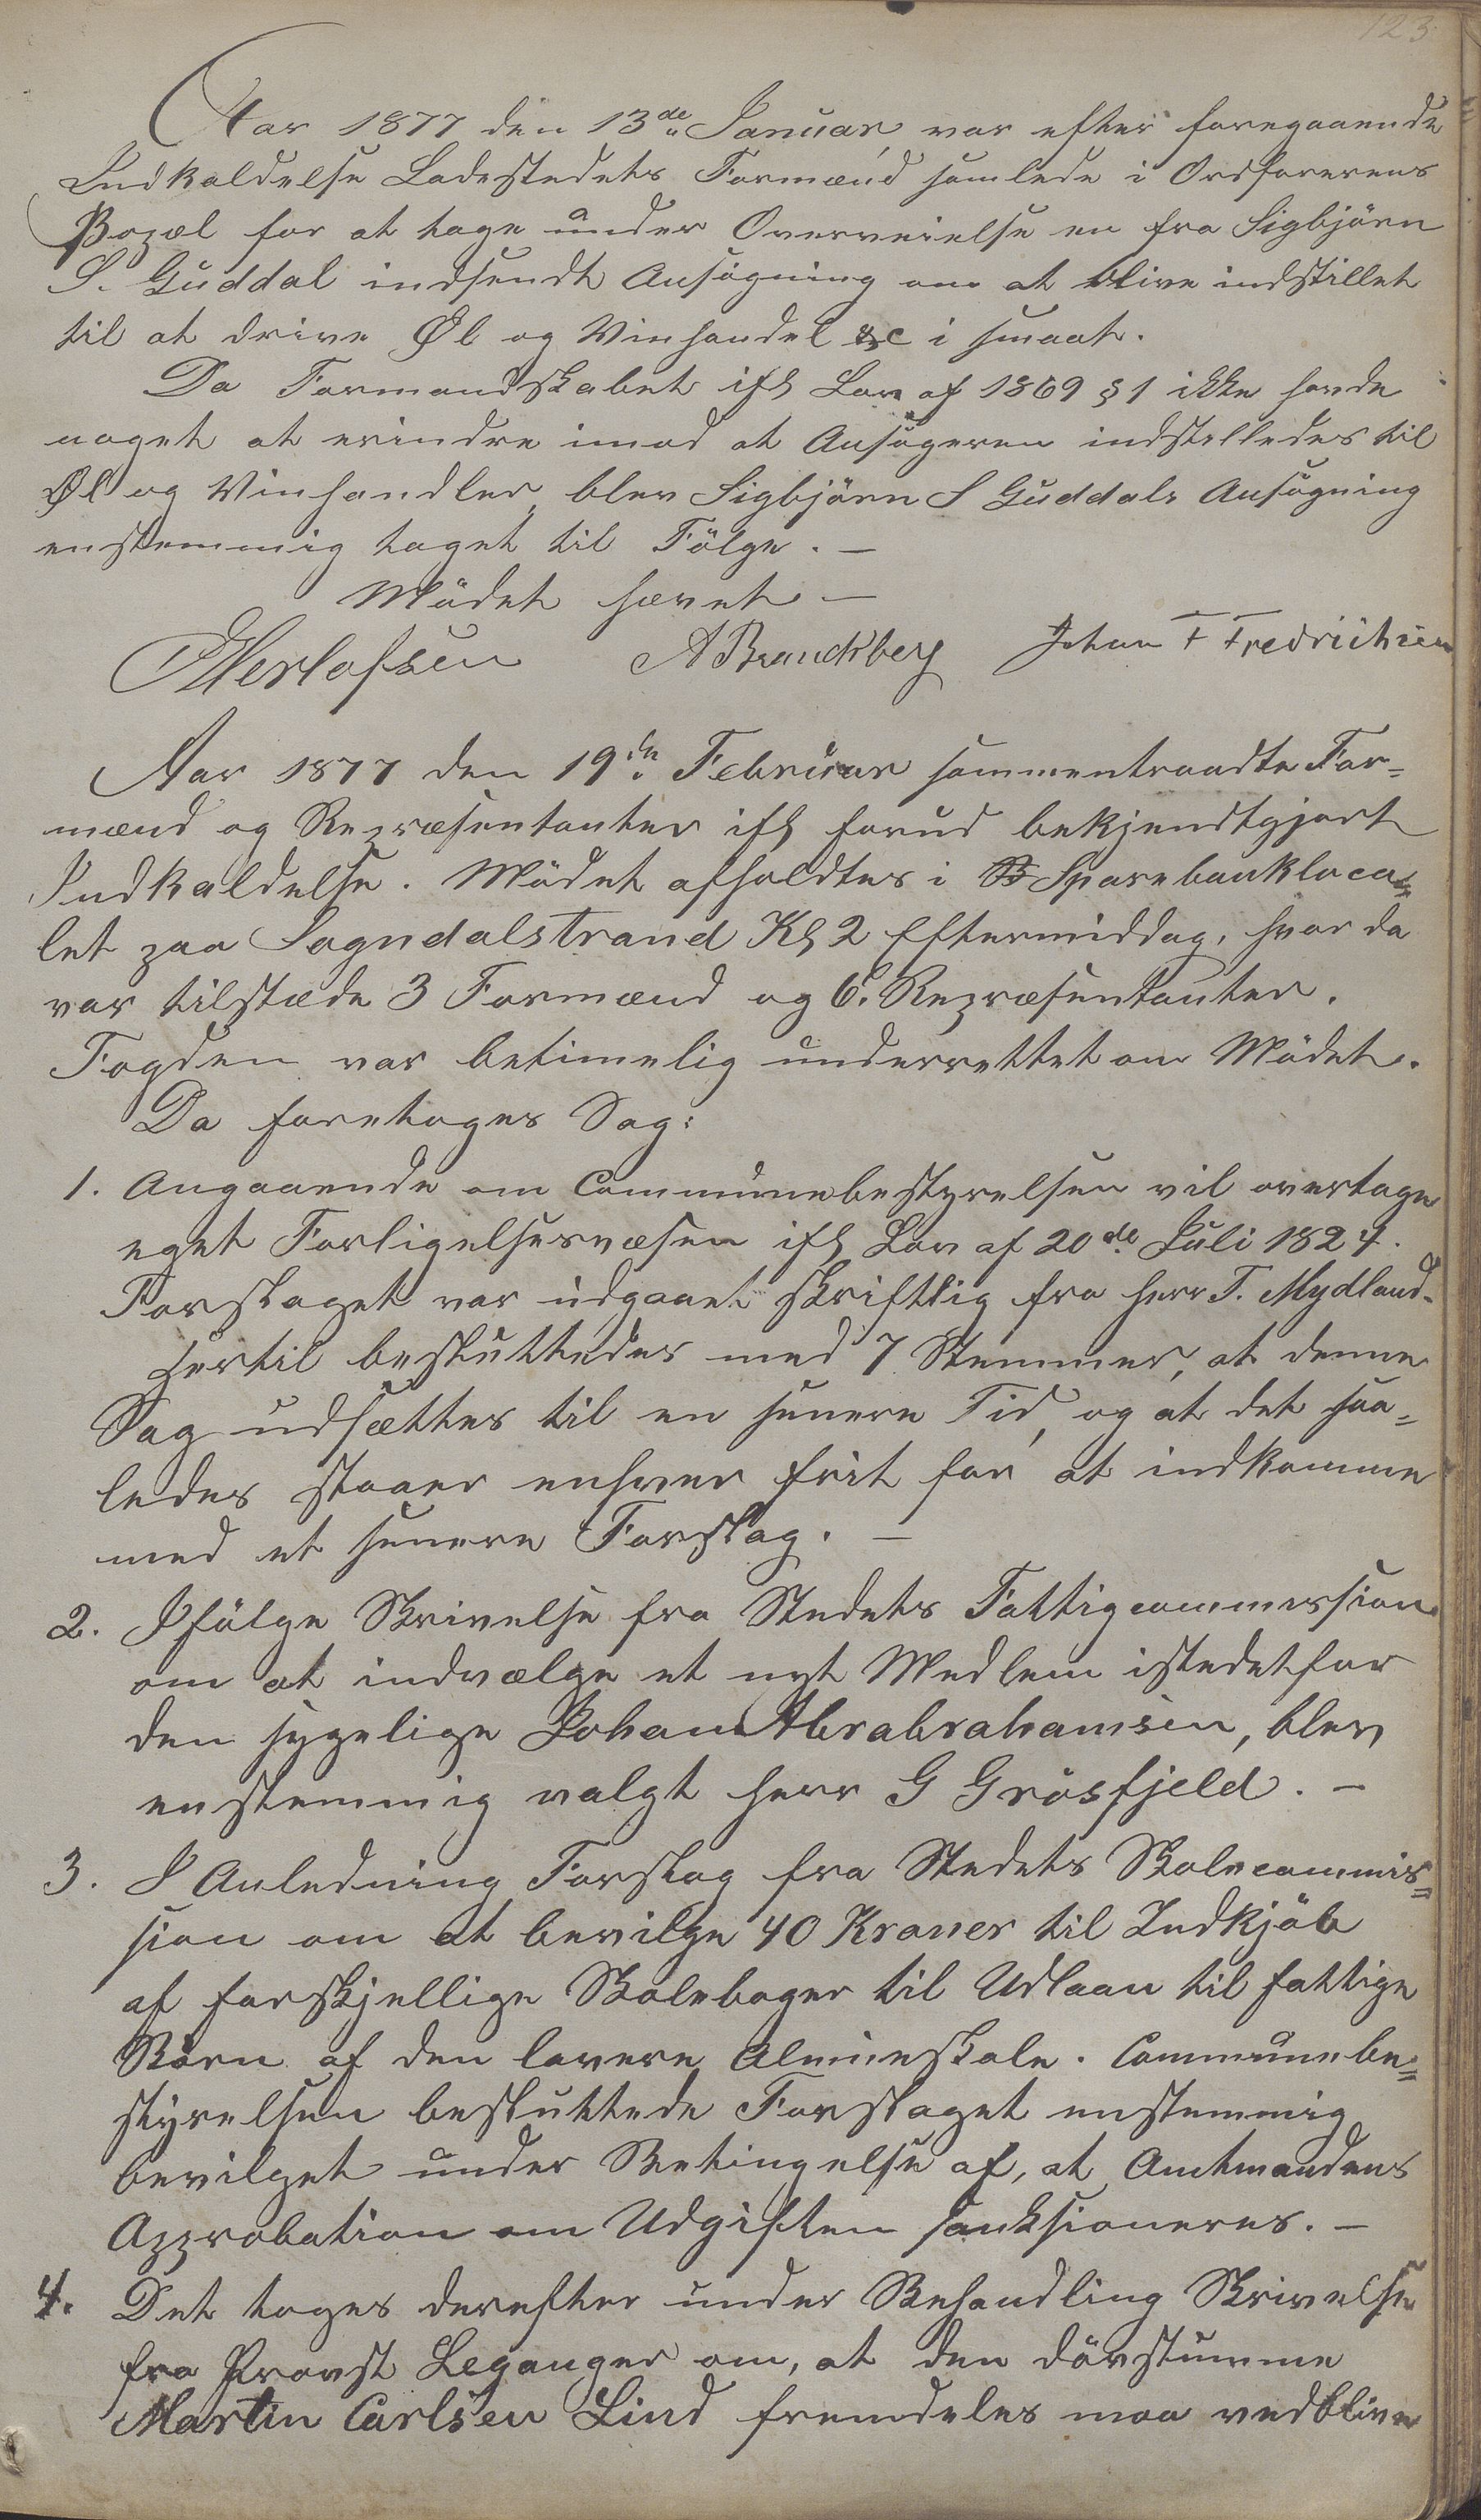 123.
Aar 1877 den 13de Januar, var efter foregaaende
Indkaldelse Ladestedets Formænd samlede i Ordforerens
Bopæl for at tage under Overveielse en fra Sigbjörn
S. Guddal indsendt Ansögning om at blive indstillet
til at drive Øl og Vinhandel &c i smaat.
Da Formandskabet ifl Lov af 1869 § 1 ikke havde
noget at erindre imod at Ansögeren indstilledes til
Øl og Vinhandler, blev Sigbjörn S Guddals Ansögning
enstemmig taget til Fölge. —
Mödet hævet —
Herlofsen A Branckberg Johan F Fredrichsen
Aar 1877 den 19de Februar sammentraadte For=
mænd og Repræsentanter ifl forud bekjendtgjort
Indkaldelse. Mödet afholdtes i Sparebankloca=
let paa Sogndalstrand Kl 2 Eftermiddag, hvor da
var tilstæde 3 Formænd og 6. Repræsentanter.
Fogden var betimelig underrettet om Mödet.
Da foretoges Sag:
1. Angaaende om Communebestyrelsen vil overtage
eget Forligelsesvæsen ifl Lov af 20de Juli 1824.
Forslaget var udgaaet skriftlig fra Herr T. Mydland.
Hertil besluttedes med 7 Stemmer, at denne
Sag udsættes til en senere Tid, og at det saa=
ledes staaer enhver frit for at indkomme
med et senere Forslag. —
2. Ifölge Skrivelse fra Stedets Fattigcommission
om at indvælge et nyt Medlem istedetfor
den sygelige Johan Abrabrahamsen, blev
enstemmig valgt Herr G Grösfjeld. —
3. I Anledning Forslag fra Stedets Skolecommis=
sion om at bevilge 40 Kroner til Indkjöb
af forskjellige Skoleboger til Udlaan til fattige
Börn af den lavere Almueskole. Communebe=
styrelsen besluttede Forslaget enstemmig
bevilget under Betingelse af, at Amtmandens
Approbation om Udgiften sanksioneres. —
4. Det toges derefter under Behandling Skrivelse
fra Provst Leganger om, at den dövstumme
Martin Carlsen Lind fremdeles maa vedblive